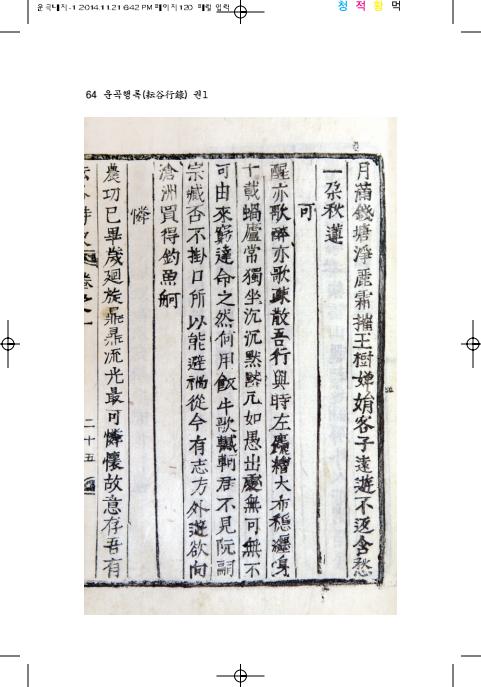 운곡내지-1 2014.11.21 6:42 PM 페이지120 매킬 입력
청 적 황 먹
64 운곡행록(耘谷行錄) 권1
月滿錢塘淨麗霜摧玉樹嬋娟客子遠遊不返含愁
一朶秋蓮
可
醒亦歌醉亦歌疎散吾行與時左麁繒大布穩纏身
十載蝸廬常獨坐沉沉默默兀如愚出處無可無不
可由來窮達命之然何用飯牛歌轗軻君不見阮嗣
宗臧否不掛口所以能避禍從今有志方外遊欲向
滄洲買得釣魚舸
憐
農功已畢歲廻旋鼎鼎流光最可憐懷故意存吾有
谷詩史 卷之一 二十五